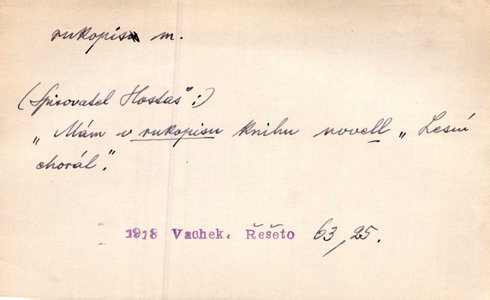 rukopis m.
(Spisovatel Hostaš:)
„Mám v rukopisu knihu novell „Lesní
chorál".
1918 Vachek. Řešeto 63, 25.